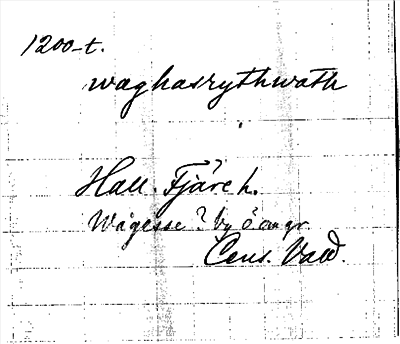 1200-t.
waghasrythwath
Hall. Fjäre h.
Wågesse? by ö angr.
Cens. Vald.